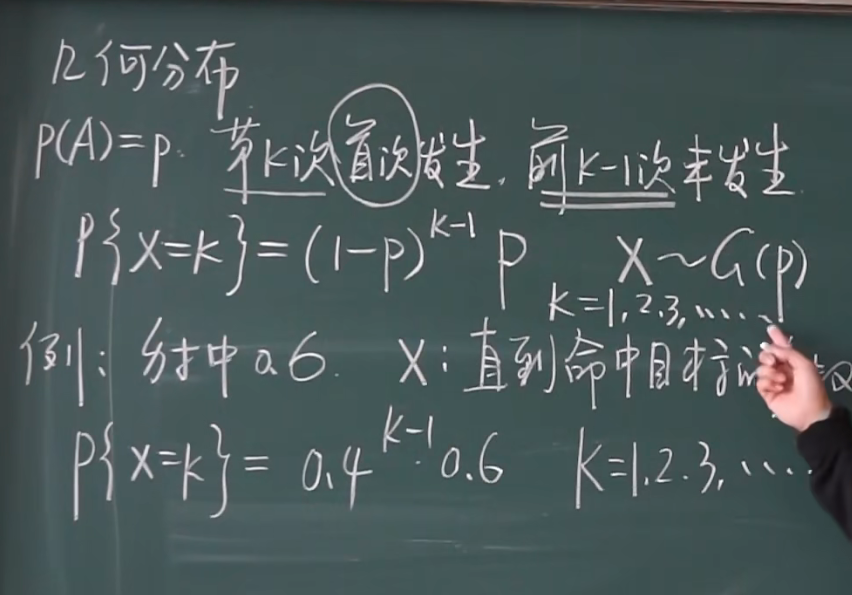 几何分布
P(A)=p. 第K次首次发生, 前K-1次未发生.
P{X=K}=(1-p)^{K-1} p X~G(p)
K=1,2,3,……
例: 射中0.6. X:直到命中目标的 数
P{X=K}= 0.4^{K-1}·0.6 K=1,2,3,……